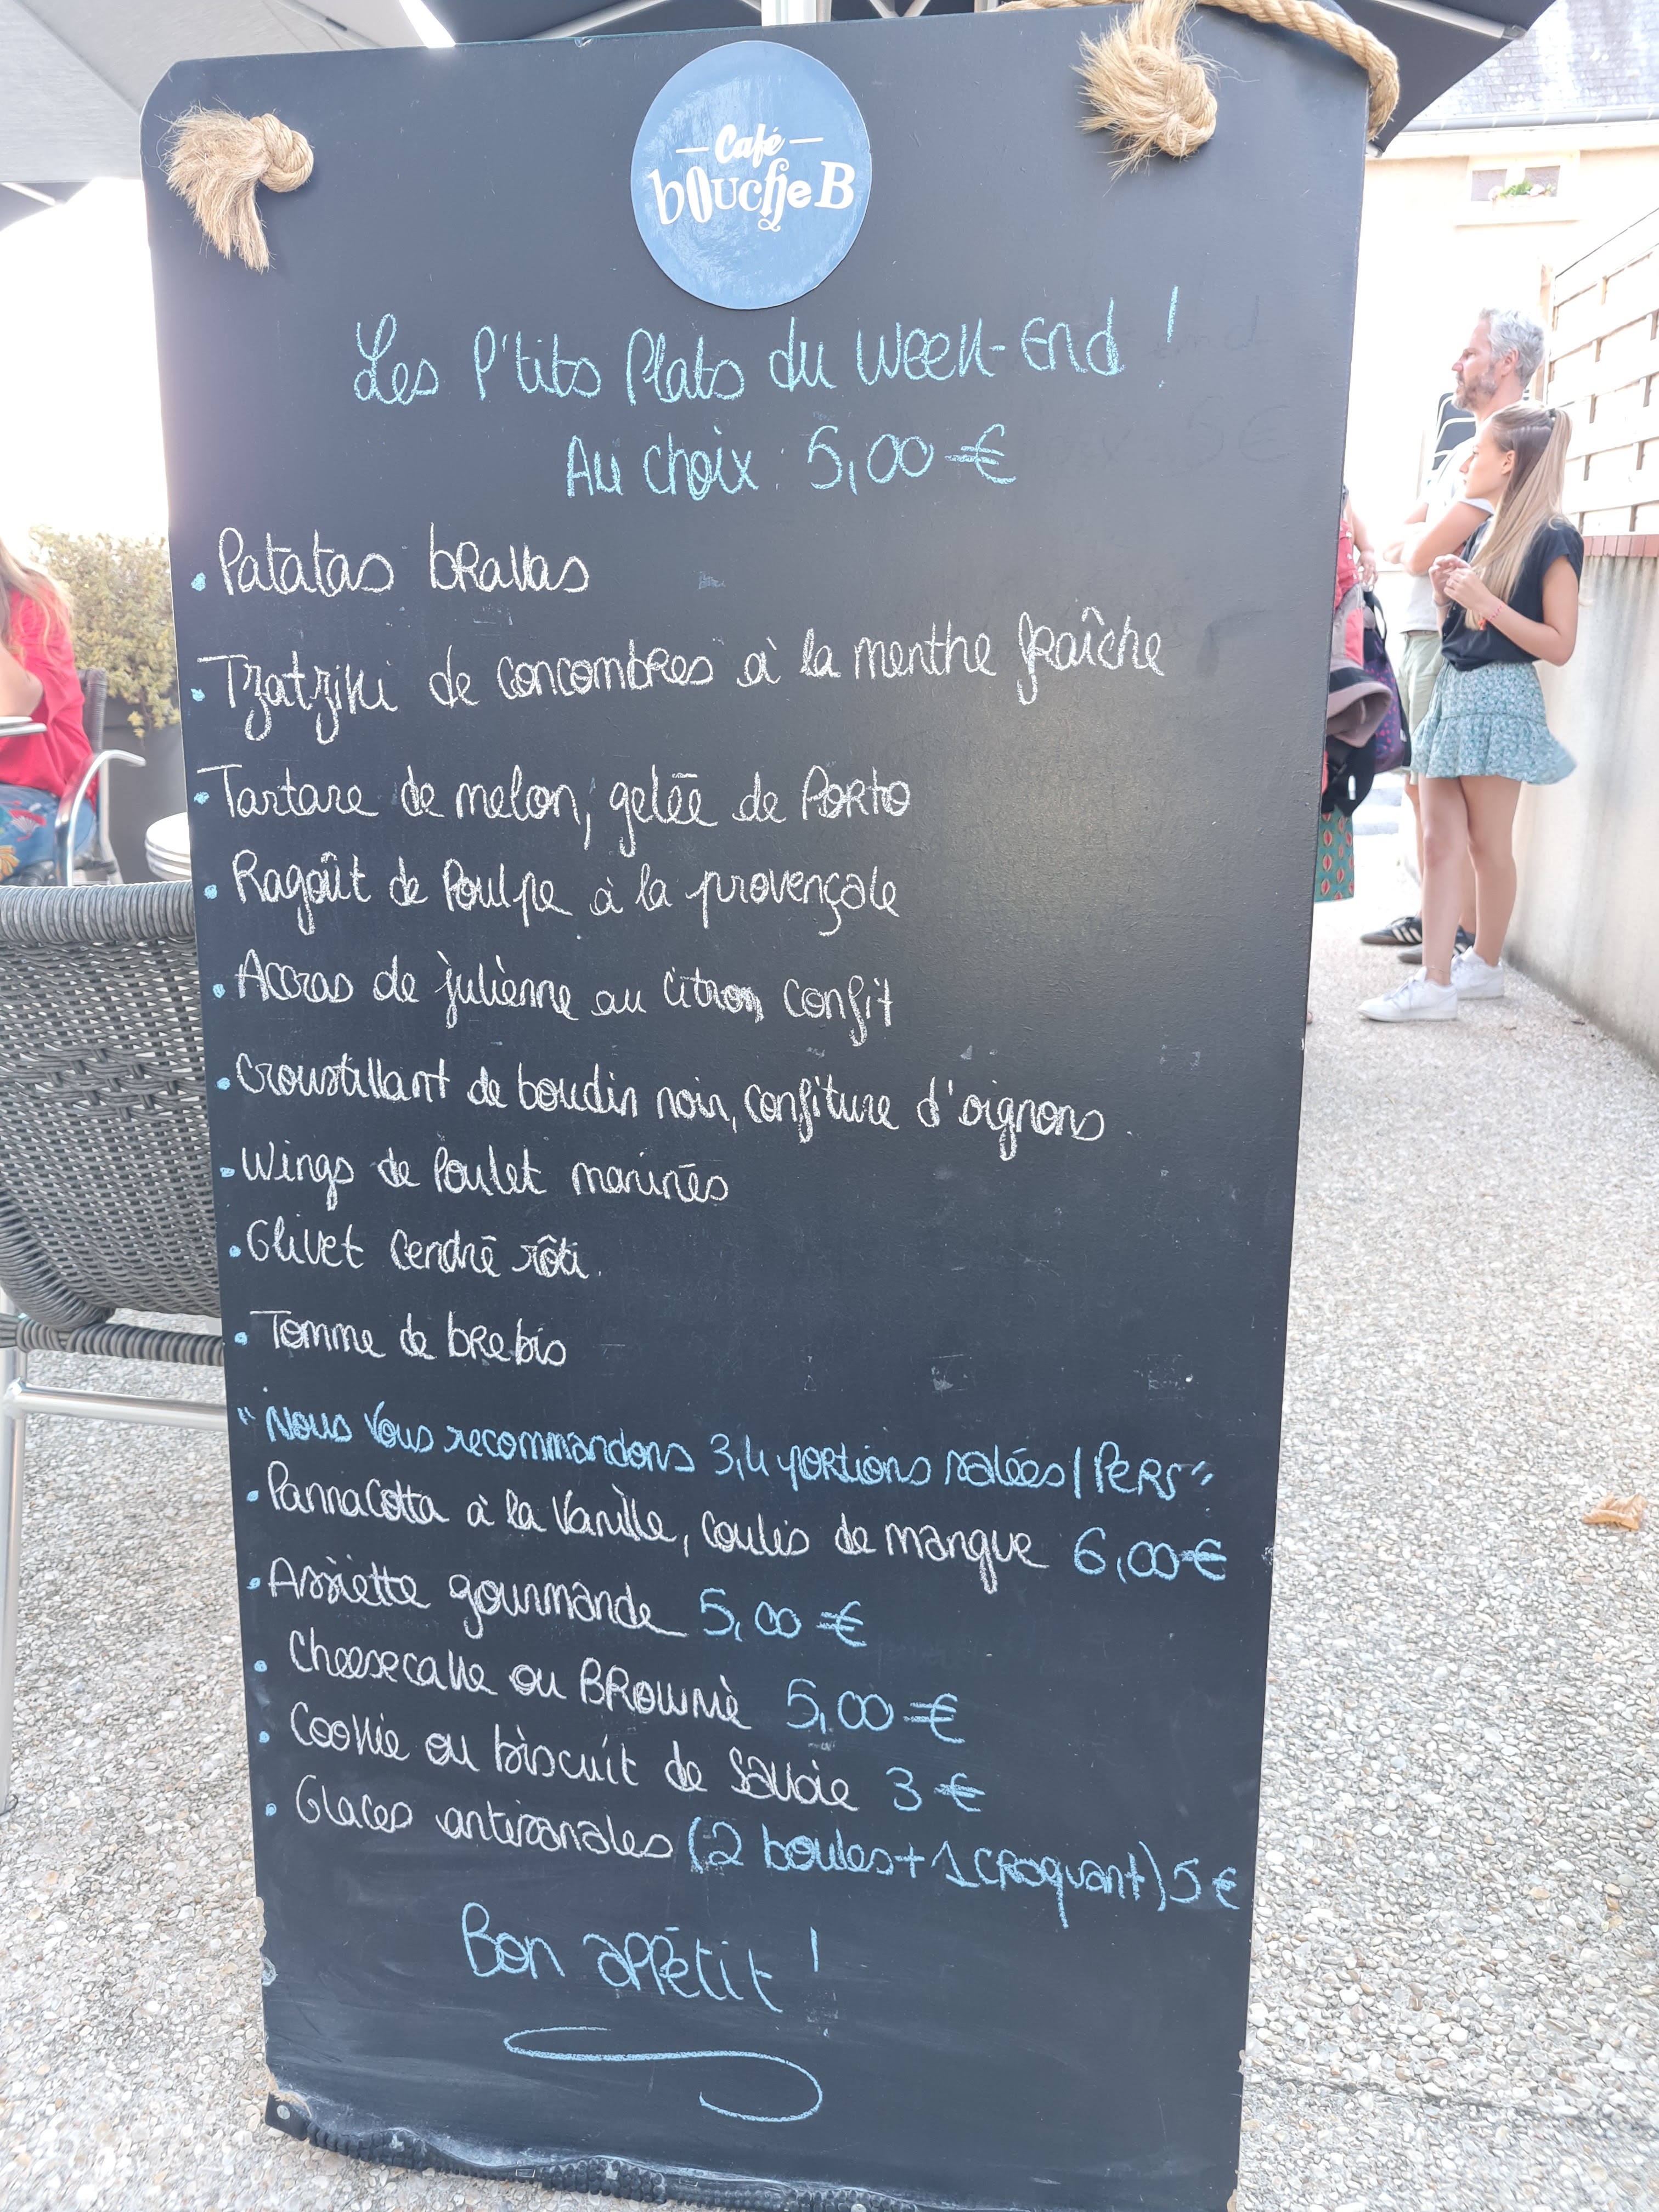 Café
bouche B
Les P'tits Plats du Week-End !
Au choix : 5,00 €
• Patatas bravas
• Tzatziki de concombres à la menthe fraîche
• Tartare de melon, gelée de Porto
• Ragoût de Poulpe à la provençale
• Accras de julienne au citron confit
• Croustillant de boudin noir, confiture d'oignons
• Wings de Poulet marinés
• Olivet Cendré rôti.
• Tomme de brebis
"Nous Vous recommandons 3,4 portions salées/PERS"
• PannaCotta à la Vanille, coulis de mangue 6,00 €
• Assiette gourmande 5,00 €
• Cheesecake ou Brownie 5,00 €
• Cookie ou biscuit de Savoie 3 €
• Glaces artisanales (2 boules + 1 croquant) 5 €
Bon appétit !